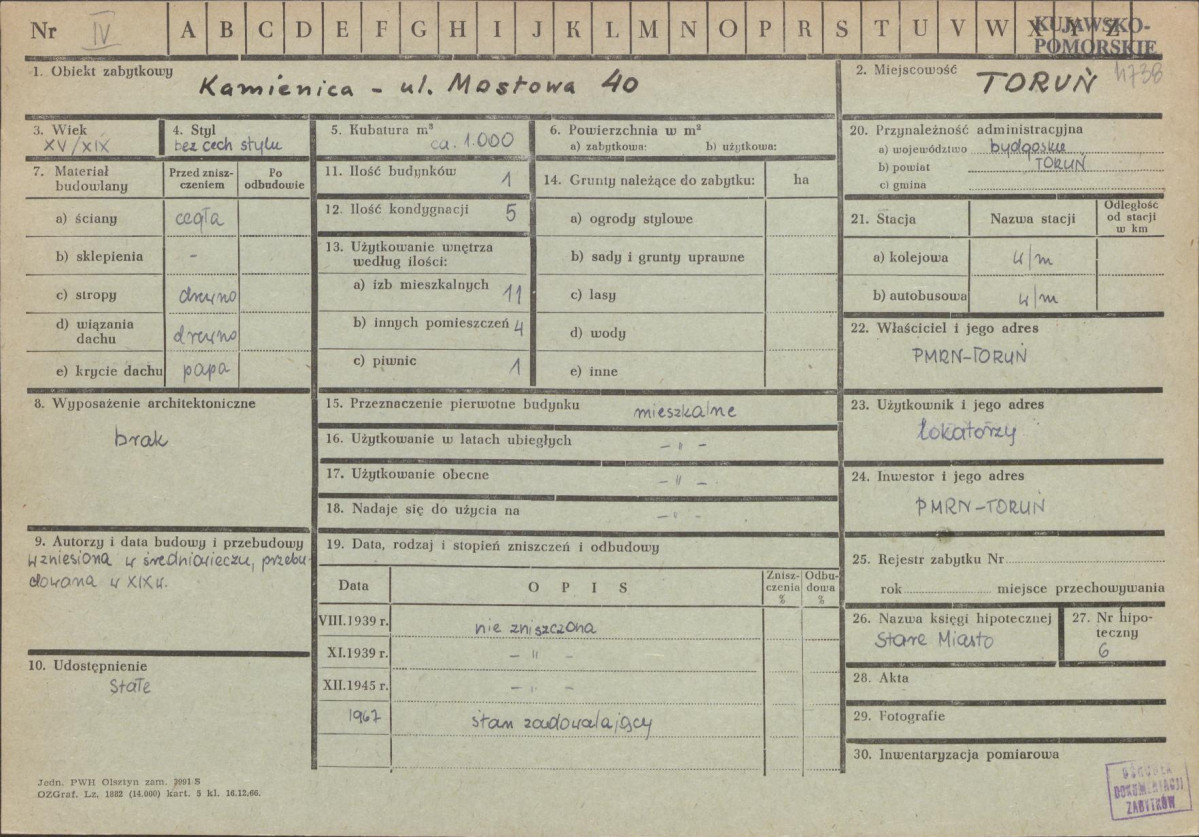 Nr IV A B C D E F G H I J K L M N O P R S T U V W X Y Z
KUJAWSKO-
POMORSKIE
1. Obiekt zabytkowy
Kamienica - ul. Mostowa 40
2. Miejscowość
TORUŃ
3. Wiek
XV/XIX
4. Styl
bez cech stylu
5. Kubatura m³
ca. 1.000
6. Powierzchnia w m²
a) zabytkowa: b) użytkowa:
20. Przynależność administracyjna
a) województwo bydgoskie
b) powiat TORUŃ
c) gmina
7. Materiał
budowlany
Przed znisz-
czeniem
Po
odbudowie
a) ściany cegła
b) sklepienia -
c) stropy drewno
d) wiązania
dachu drewno
e) krycie dachu papa
11. Ilość budynków 1
12. Ilość kondygnacji 5
13. Użytkowanie wnętrza
według ilości:
a) izb mieszkalnych 11
b) innych pomieszczeń 4
c) piwnic 1
14. Grunty należące do zabytku: ha
a) ogrody stylowe
b) sady i grunty uprawne
c) lasy
d) wody
e) inne
21. Stacja Nazwa stacji
Odległość
od stacji
w km
a) kolejowa w/m
b) autobusowa w/m
22. Właściciel i jego adres
PMRN-TORUŃ
8. Wyposażenie architektoniczne
brak
15. Przeznaczenie pierwotne budynku mieszkalne
16. Użytkowanie w latach ubiegłych - " -
17. Użytkowanie obecne - " -
18. Nadaje się do użycia na - " -
23. Użytkownik i jego adres
lokatorzy
24. Inwestor i jego adres
PMRN-TORUŃ
9. Autorzy i data budowy i przebudowy
wzniesiona w średniowieczu, przebu-
dowana w XIXw.
19. Data, rodzaj i stopień zniszczeń i odbudowy
Data OPIS
Znisz-
czenia
%
Odbu-
dowa
%
VIII.1939 r. nie zniszczona
XI.1939 r. - " -
XII.1945 r. - " -
1967 stan zadowalający
25. Rejestr zabytku Nr
rok miejsce przechowywania
26. Nazwa księgi hipotecznej
Stare Miasto
27. Nr hipo-
teczny
6
10. Udostępnienie
Stałe
28. Akta
29. Fotografie
30. Inwentaryzacja pomiarowa
Jedn. PWH Olsztyn zam. 2991 S
OZGraf. Lz. 1882 (14.000) kart. 5 kl. 16.12.66.
OŚRODEK
DOKUMENTACJI
ZABYTKÓW